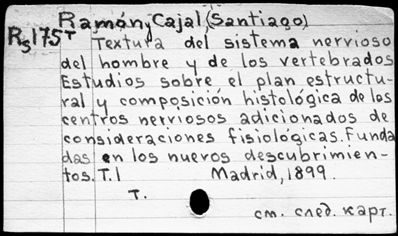 Ramón y Cajal, (Santiago)
R₃175ᵀ Textura del sistema nervioso
del hombre y de los vertebrados
Estudios sobre el plan estructu-
ral y composición histológica de los
centros nerviosos adicionados de
consideraciones fisiológicas. Funda
das en los nuevos descubrimien-
tos. T. I Madrid, 1899.
T.
см. след. карт.